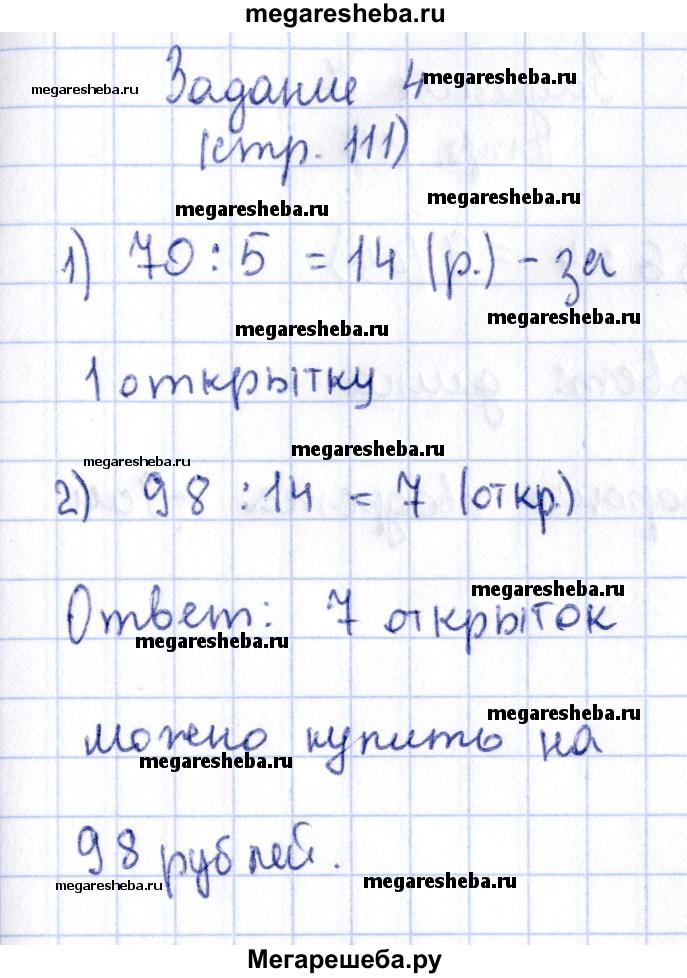 megaresheba.ru
Задание 4
megaresheba.ru megaresheba.ru
(стр. 111)
megaresheba.ru megaresheba.ru
1) 70 : 5 = 14 (р.) - за
megaresheba.ru megaresheba.ru
1 открытку
megaresheba.ru megaresheba.ru
2) 98 : 14 = 7 (откр.)
megaresheba.ru
Ответ: 7 открыток
megaresheba.ru
megaresheba.ru
можно купить на
megaresheba.ru
98 рублей.
megaresheba.ru megaresheba.ru
Мегарешеба.ру